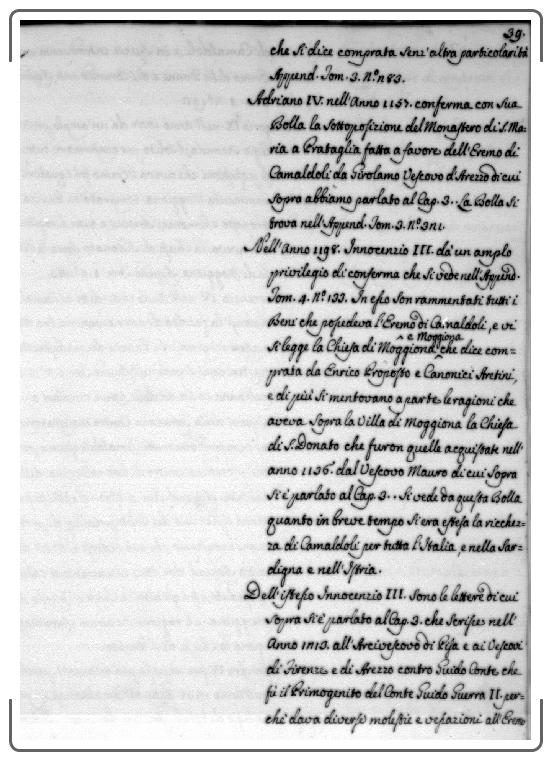 39.
che si dice comprata senz'altra particolarità
Append. Tom. 3. N.º 83.
Adriano IV. nell'Anno 1157. conferma con sua
Bolla la sottoposizione del Monastero di S. Ma=
ria a Prataglia fatta a favore dell'Eremo di
Camaldoli da Girolamo Vescovo d'Arezzo di cui
sopra abbiamo parlato al Cap. 3.. La Bolla si
trova nell'Append. Tom. 3. N.º
Nell'Anno 1198. Innocenzio III. dà un amplo
privilegio di conferma che si vede nell'Append.
Tom. 4. N.º 133. In esso son rammentati tutti i
Beni che possedeva l'Eremo di Camaldoli, e vi
si legge la Chiesa di Moggiona e Moggiona che dice com=
prata da Enrico Proposto e Canonici Aretini,
e di più si mentovano a parte le ragioni che
aveva sopra la Villa di Moggiona la Chiesa
di S. Donato che furon quelle acquistate nell'
anno 1136. dal Vescovo Mauro di cui sopra
si è parlato al Cap. 3.. Si vede da questa Bolla
quanto in breve tempo si era estesa la ricchez=
za di Camaldoli per tutta l'Italia, e nella Sar=
digna e nell'Istria.
Dell'istesso Innocenzio III. sono le lettere di cui
sopra si è parlato al Cap. 3. che scrisse nell'
Anno 1213. all'Arcivescovo di Pisa e ai Vescovi
di Firenze e di Arezzo contro Guido Conte che
fù il Primogenito del Conte Guido Guerra II. per=
chè dava diverse molestie e vessazioni all'Eremo